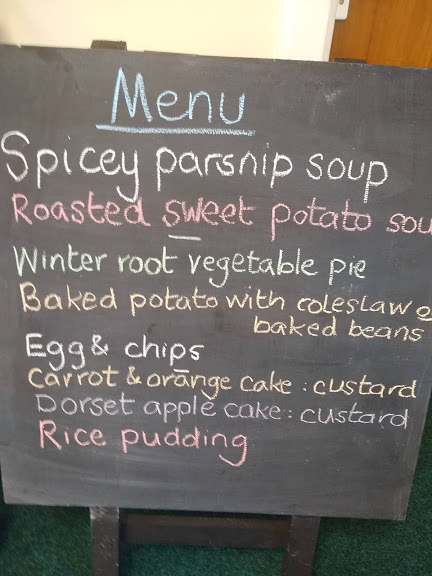 Menu
Spicey parsnip soup
Roasted sweet potato sou
Winter root vegetable pie
Baked potato with coleslaw
baked beans
Egg & chips
Carrot & orange cake : custard
Dorset apple cake : custard
Rice pudding